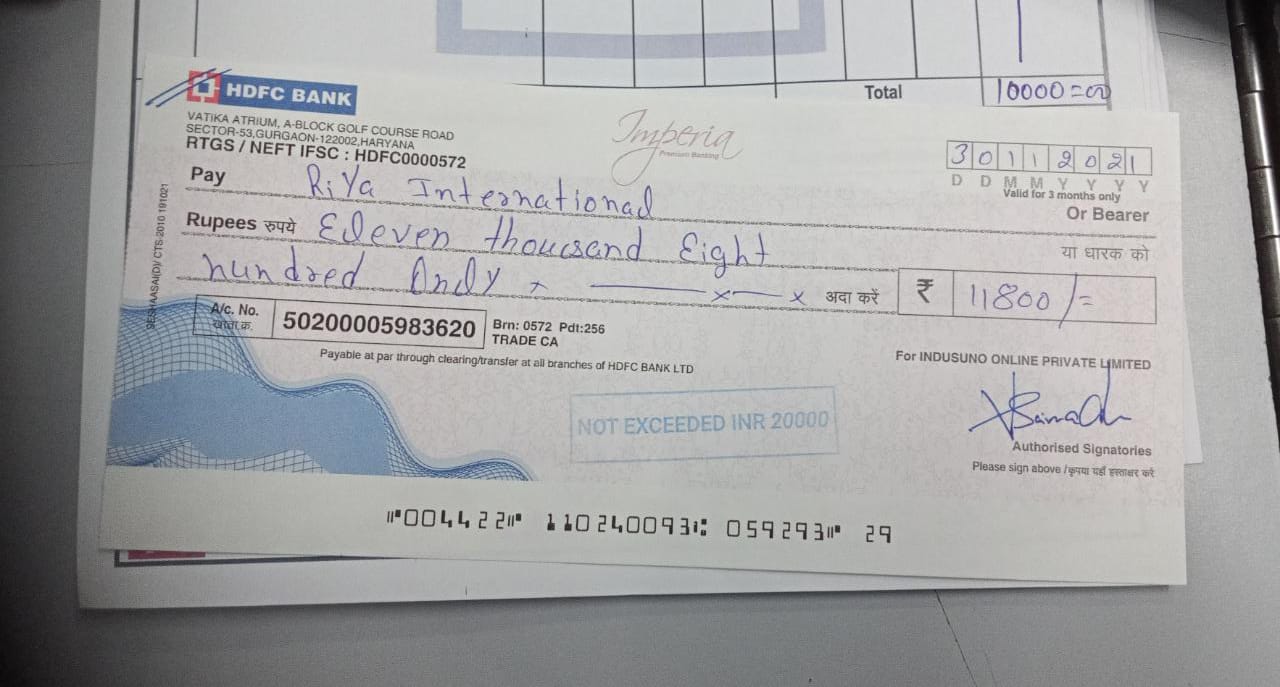 Total 10000=00
HDFC BANK
VATIKA ATRIUM, A-BLOCK GOLF COURSE ROAD
SECTOR-53,GURGAON-122002,HARYANA
RTGS / NEFT IFSC : HDFC0000572
Imperia
Premium Banking
30112021
D D M M Y Y Y Y
Valid for 3 months only
Pay RiYa International
Or Bearer
Rupees रुपये Eleven thousand Eight
या धारक को
hundred Only x ——— x — x अदा करें ₹ 11800/=
A/c. No.
खाता क्र.
50200005983620
Brn: 0572 Pdt:256
TRADE CA
Payable at par through clearing/transfer at all branches of HDFC BANK LTD
For INDUSUNO ONLINE PRIVATE LIMITED
NOT EXCEEDED INR 20000
Authorised Signatories
Please sign above / कृपया यहाँ हस्ताक्षर करें
⑈004422⑈ 110240093⑆ 059293⑈ 29